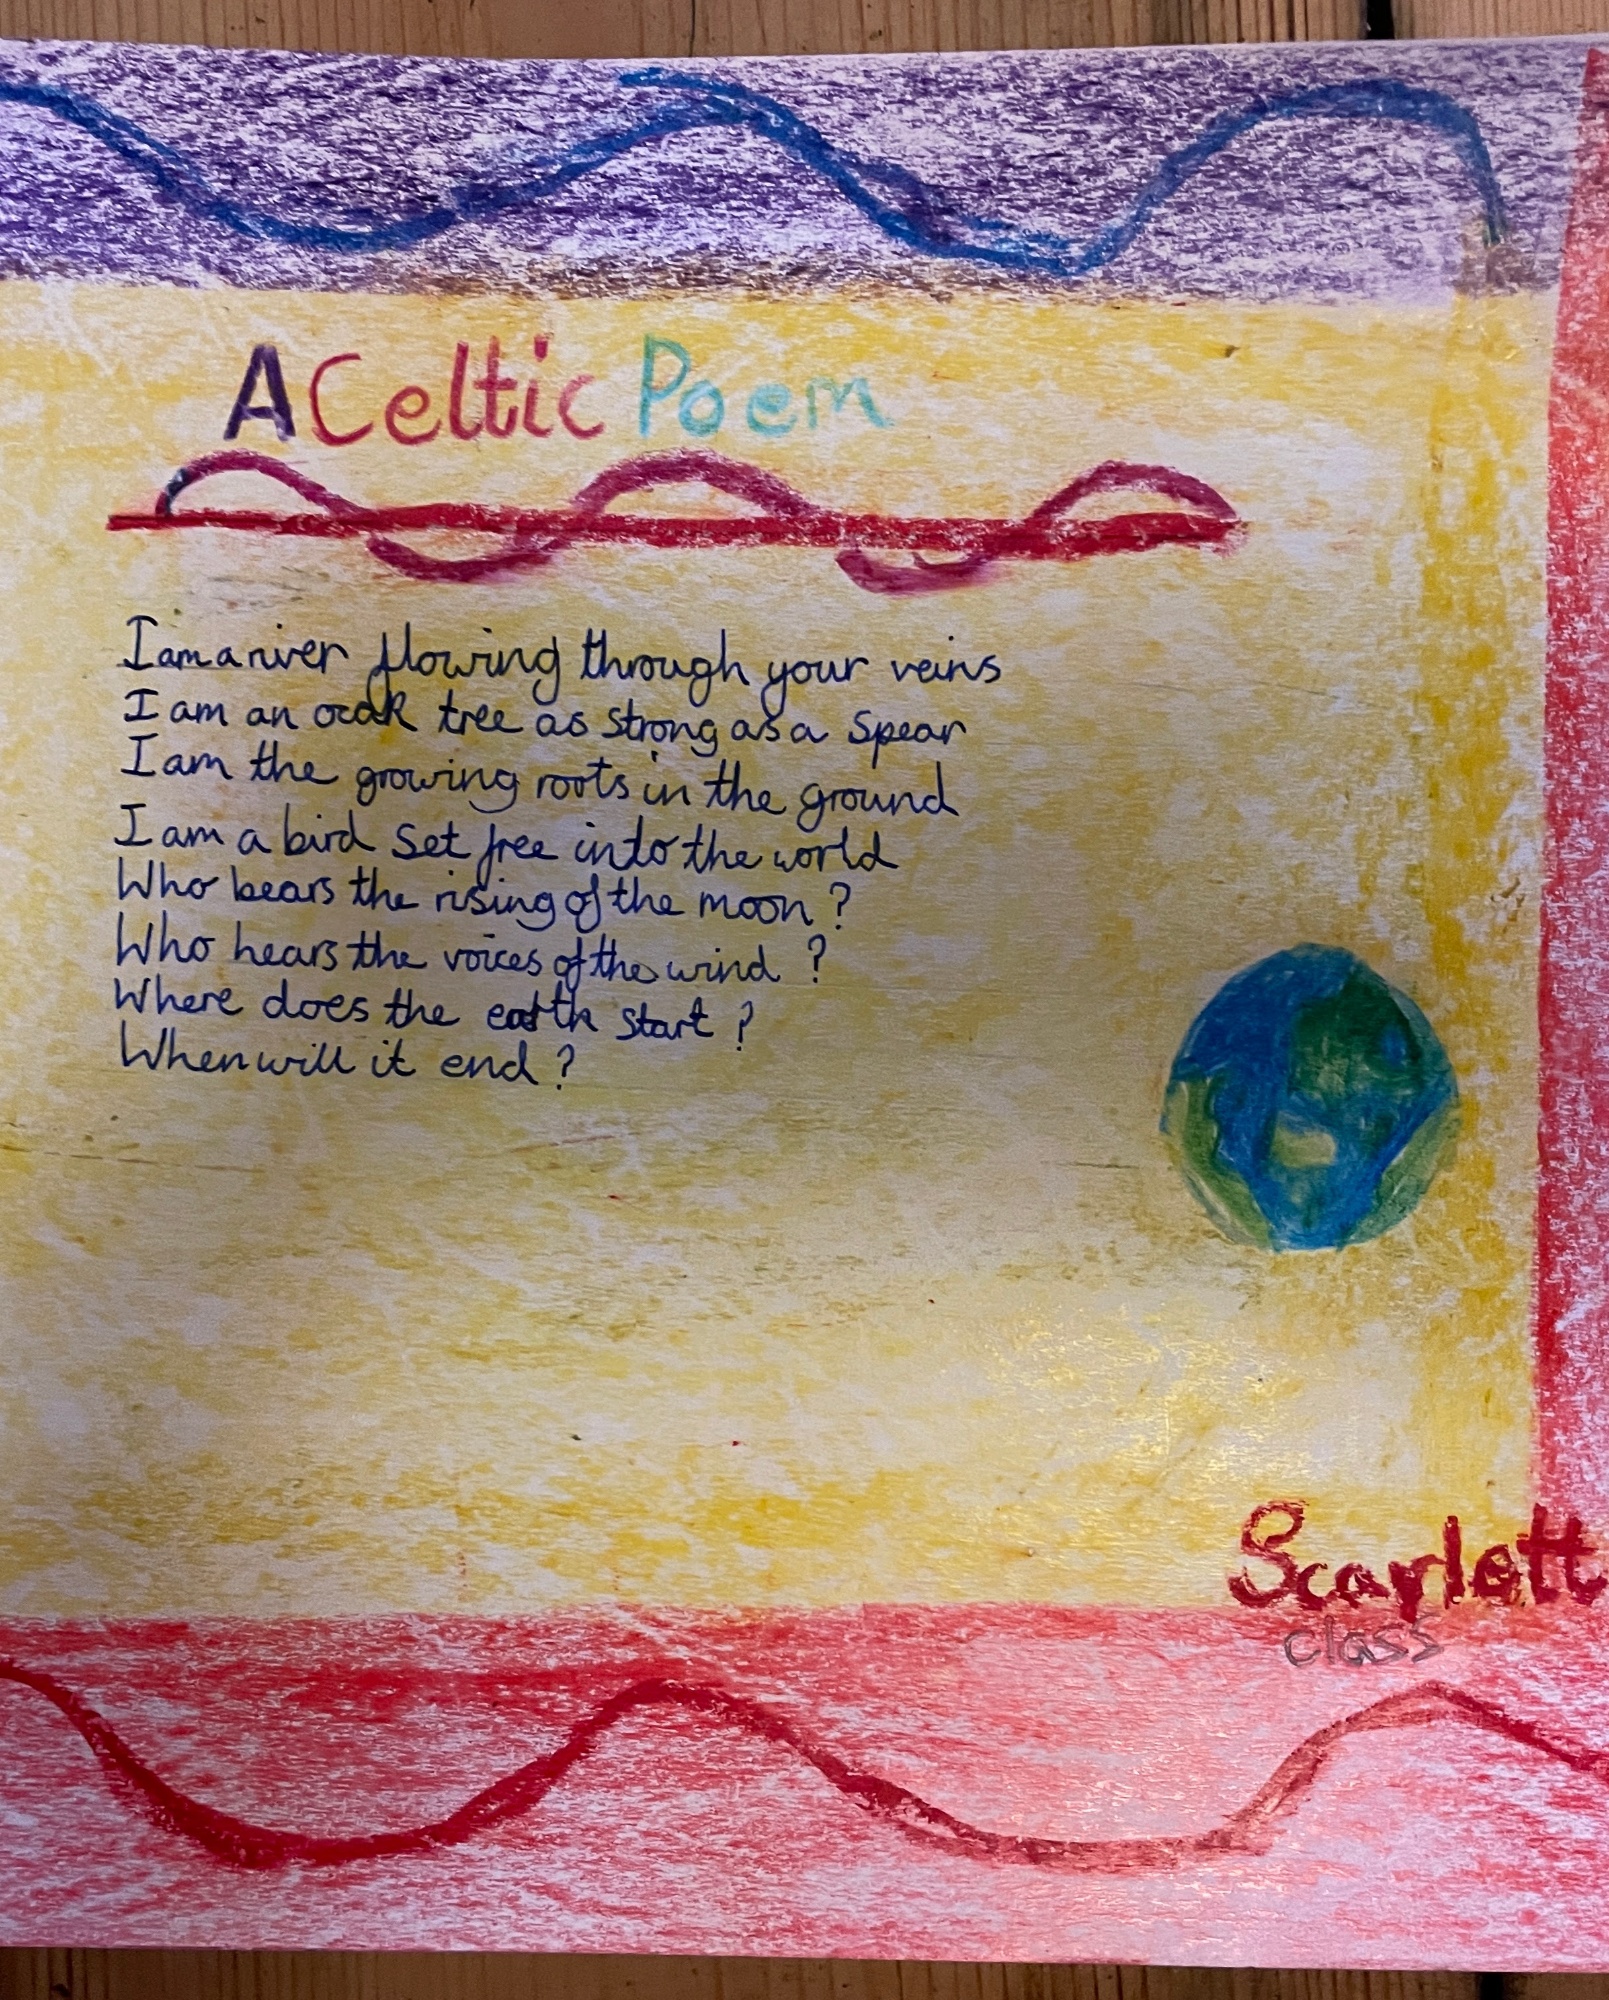 A Celtic Poem
I am a river flowing through your veins
I am an oak tree as strong as a spear
I am the growing roots in the ground
I am a bird set free into the world
Who bears the rising of the moon?
Who hears the voices of the wind?
Where does the earth start?
When will it end?
Scarlett
class